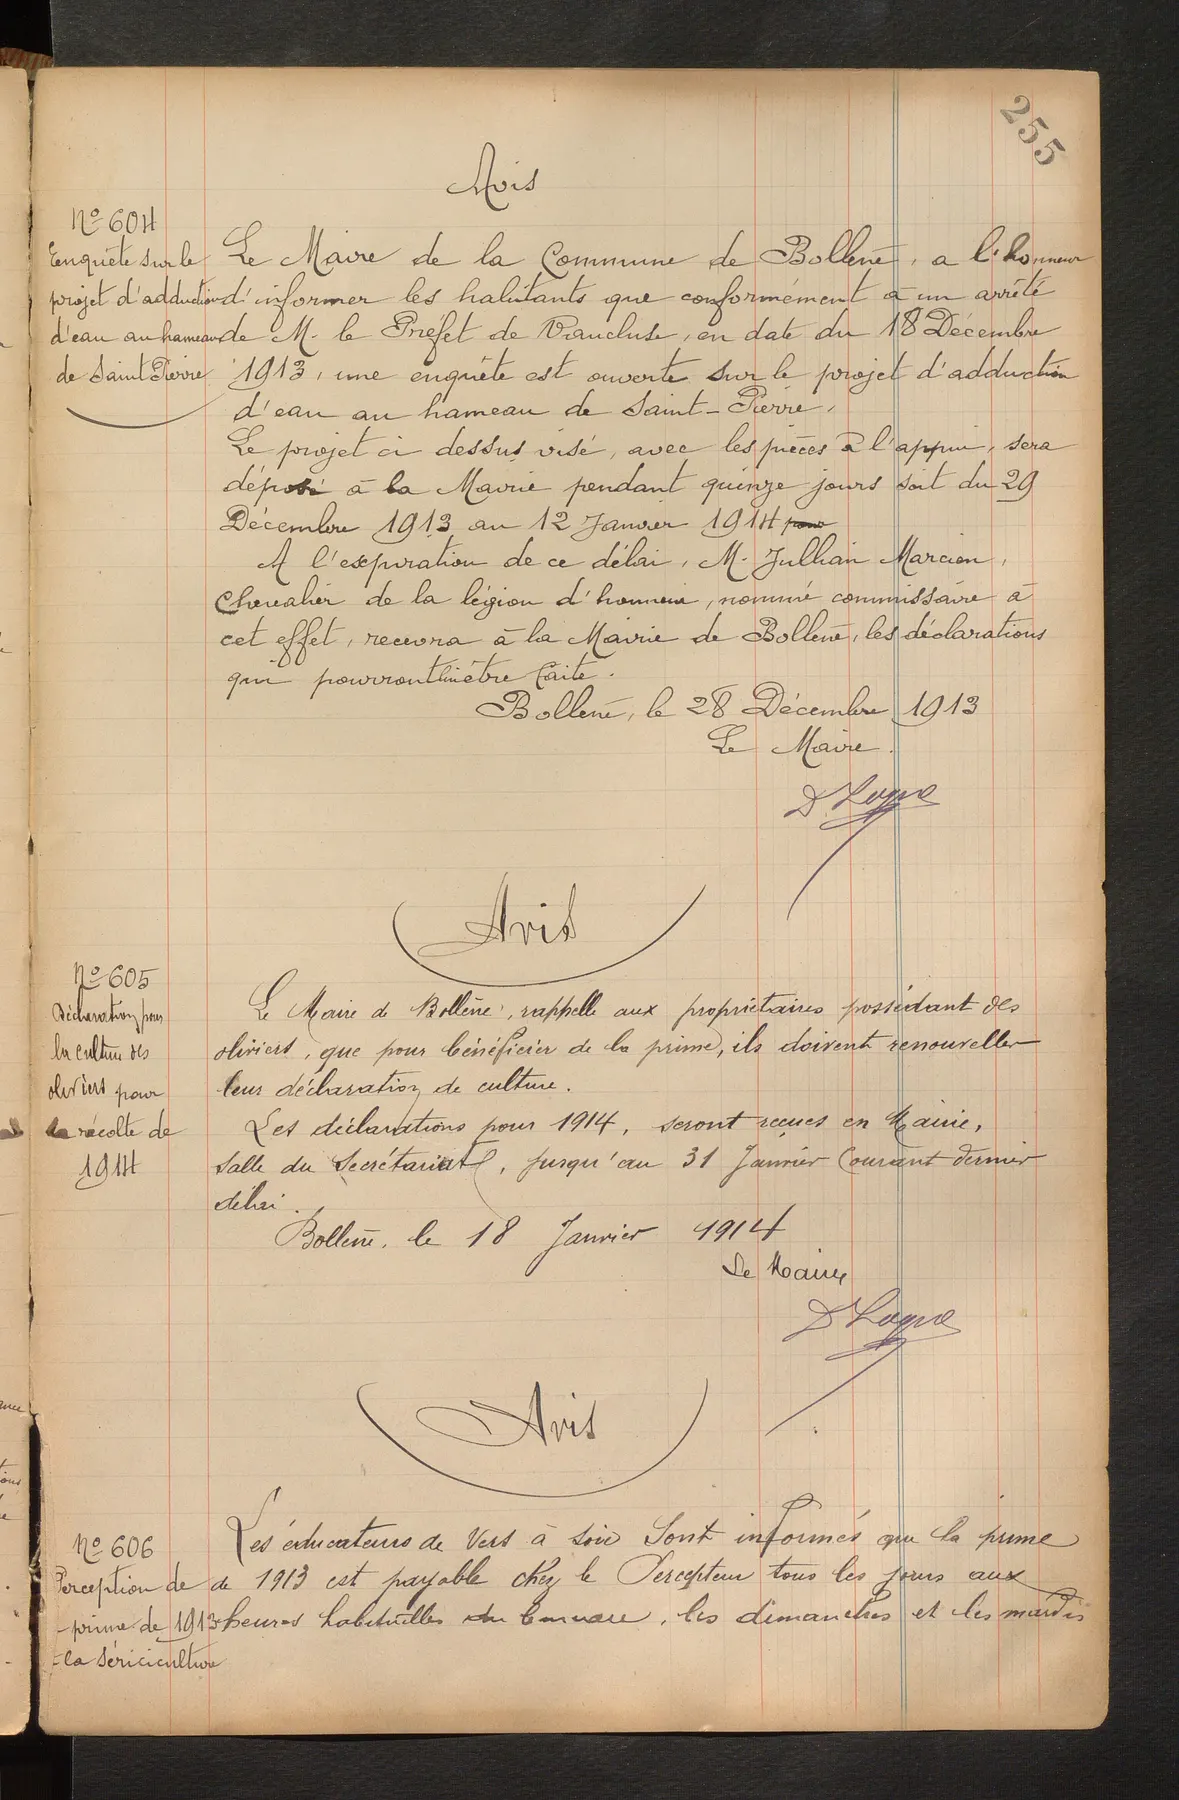 255
Avis
No 604
Enquête sur le
projet d'adduction
d'eau au hameau
de Saint Pierre
Le Maire de la Commune de Bollène, a l'honneur
d'informer les habitants que conformément à un arrêté
de M. le Préfet de Vaucluse, en date du 18 Décembre
1913, une enquête est ouverte sur le projet d'adduction
d'eau au hameau de Saint-Pierre.
Le projet ci dessus visé, avec les pièces à l'appui, sera
déposé à la Mairie pendant quinze jours soit du 29
Décembre 1913 au 12 Janvier 1914 pour
A l'expiration de ce délai, M. Jullian Marcien,
Chevalier de la légion d'honneur, nommé commissaire à
cet effet, recevra à la Mairie de Bollène, les déclarations
qui pourront lui être faite.
Bollène, le 28 Décembre 1913
Le Maire.
Avis
No 605
Déclaration pour
la culture des
oliviers pour
la récolte de
1914
Le Maire de Bollène, rappelle aux propriétaires possédant des
oliviers, que pour bénéficier de la prime, ils doivent renouveller
leur déclaration de culture.
Les déclarations pour 1914, seront reçues en Mairie,
salle du Secrétariat, jusqu'au 31 Janvier Courant dernier
délai.
Bollène, le 18 Janvier 1914
Le Maire
Avis
No 606
Perception de
prime de 1913
la Sériciculture
Les éducateurs de Vers à soie Sont informés que la prime
de 1913 est payable chez le Percepteur tous les jours aux
heures habituelles du bureau, les dimanches et les mardis